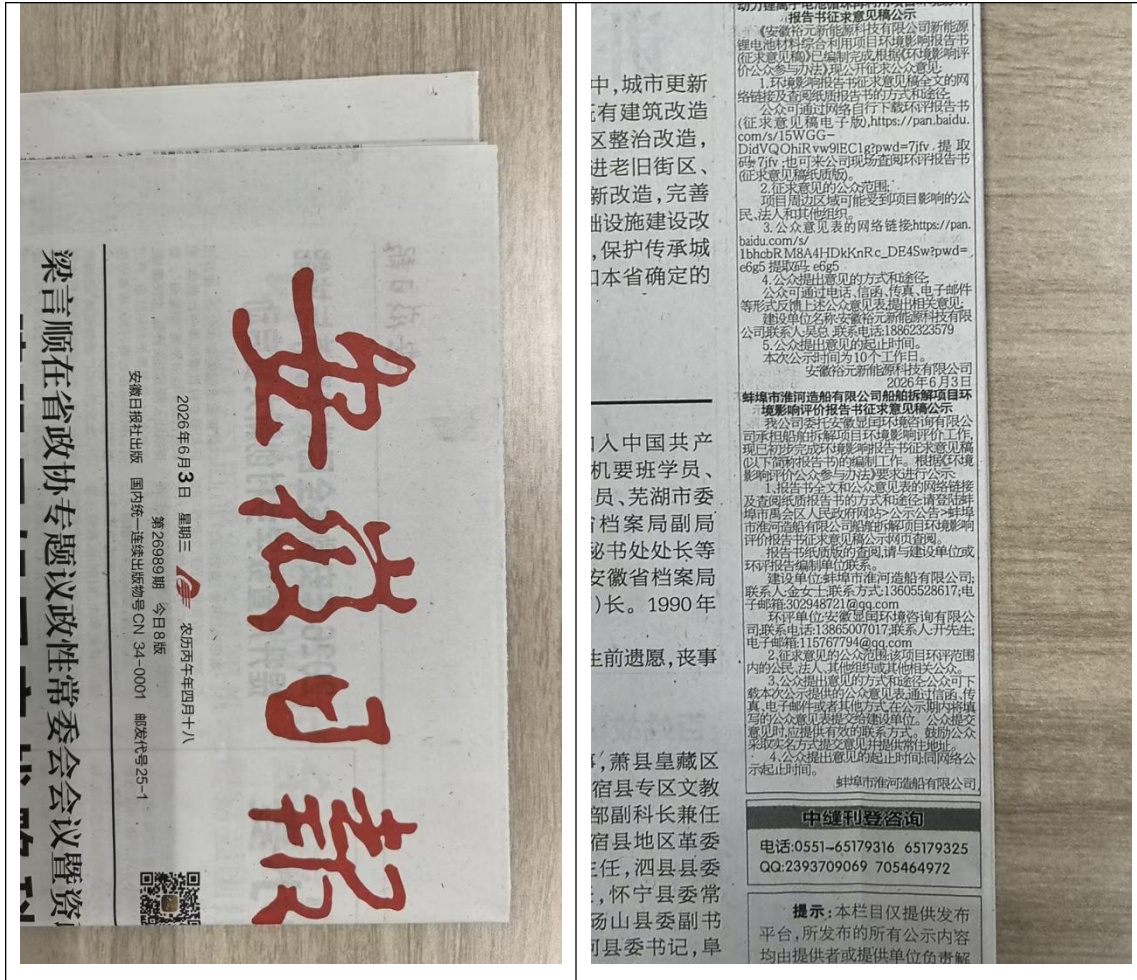 安徽日报
2026年6月3日 星期三 农历丙午年四月十八
第26989期 今日8版
安徽日报社出版 国内统一连续出版物号CN 34-0001 邮发代号25-1
梁言顺在省政协专题议政性常委会会议暨资
中,城市更新
有建筑改造
区整治改造,
进老旧街区、
新改造,完善
础设施建设改
,保护传承城
和本省确定的
加入中国共产
机要班学员、
员、芜湖市委
省档案局副局
秘书处处长等
安徽省档案局
)长。1990年
生前遗愿,丧事
,萧县皇藏区
宿县专区文教
部副科长兼任
宿县地区革委
主任,泗县县委
,怀宁县委常
砀山县委副书
河县委书记,阜
动力锂离子电池循环再利用项目环境影响
报告书征求意见稿公示
《安徽裕元新能源科技有限公司新能源
锂电池材料综合利用项目环境影响报告书
(征求意见稿)》已编制完成,根据《环境影响评
价公众参与办法》,现公开征求公众意见:
1.环境影响报告书征求意见稿全文的网
络链接及查阅纸质报告书的方式和途径;
公众可通过网络自行下载环评报告书
(征求意见稿电子版),https://pan.baidu.
com/s/15WGG-
DidVQOhiRvw9lEC1g?pwd=7jfv 提取
码:7jfv;也可来公司现场查阅环评报告书
(征求意见稿纸质版)。
2.征求意见的公众范围;
项目周边区域可能受到项目影响的公
民、法人和其他组织。
3.公众意见表的网络链接;https://pan.
baidu.com/s/
1bhcbRM8A4HDkKnRc_DE4Sw?pwd=
e6g5 提取码: e6g5
4.公众提出意见的方式和途径;
公众可通过电话、信函、传真、电子邮件
等形式反馈上述公众意见表,提出相关意见;
建设单位名称:安徽裕元新能源科技有限
公司,联系人:吴总,联系电话:18862323579
5.公众提出意见的起止时间。
本次公示时间为10个工作日。
安徽裕元新能源科技有限公司
2026年6月3日
蚌埠市淮河造船有限公司船舶拆解项目环
境影响评价报告书征求意见稿公示
我公司委托安徽显闰环境咨询有限公
司承担船舶拆解项目环境影响评价工作,
现已初步完成环境影响报告书征求意见稿
(以下简称报告书)的编制工作。根据《环境
影响评价公众参与办法》要求进行公示:
1.报告书全文和公众意见表的网络链接
及查阅纸质报告书的方式和途径:请登陆蚌
埠市禹会区人民政府网站>公示公告>蚌埠
市淮河造船有限公司船舶拆解项目环境影响
评价报告书征求意见稿公示网页查阅。
报告书纸质版的查阅,请与建设单位或
环评报告编制单位联系。
建设单位:蚌埠市淮河造船有限公司;
联系人:金女士;联系方式:13605528617;电
子邮箱:302948721@qq.com
环评单位:安徽显闰环境咨询有限公
司;联系电话:13865007017;联系人:开先生;
电子邮箱:115767794@qq.com
2.征求意见的公众范围:该项目环评范围
内的公民、法人、其他组织或其他相关公众。
3.公众提出意见的方式和途径:公众可下
载本次公示提供的公众意见表,通过信函、传
真、电子邮件或者其他方式,在公示期内将填
写的公众意见表提交给建设单位。公众提交
意见时,应提供有效的联系方式。鼓励公众
采取实名方式提交意见并提供常住地址。
4.公众提出意见的起止时间:同网络公
示起止时间。
蚌埠市淮河造船有限公司
中缝刊登咨询
电话:0551-65179316 65179325
QQ:2393709069 705464972
提示:本栏目仅提供发布
平台,所发布的所有公示内容
均由提供者或提供单位负责解